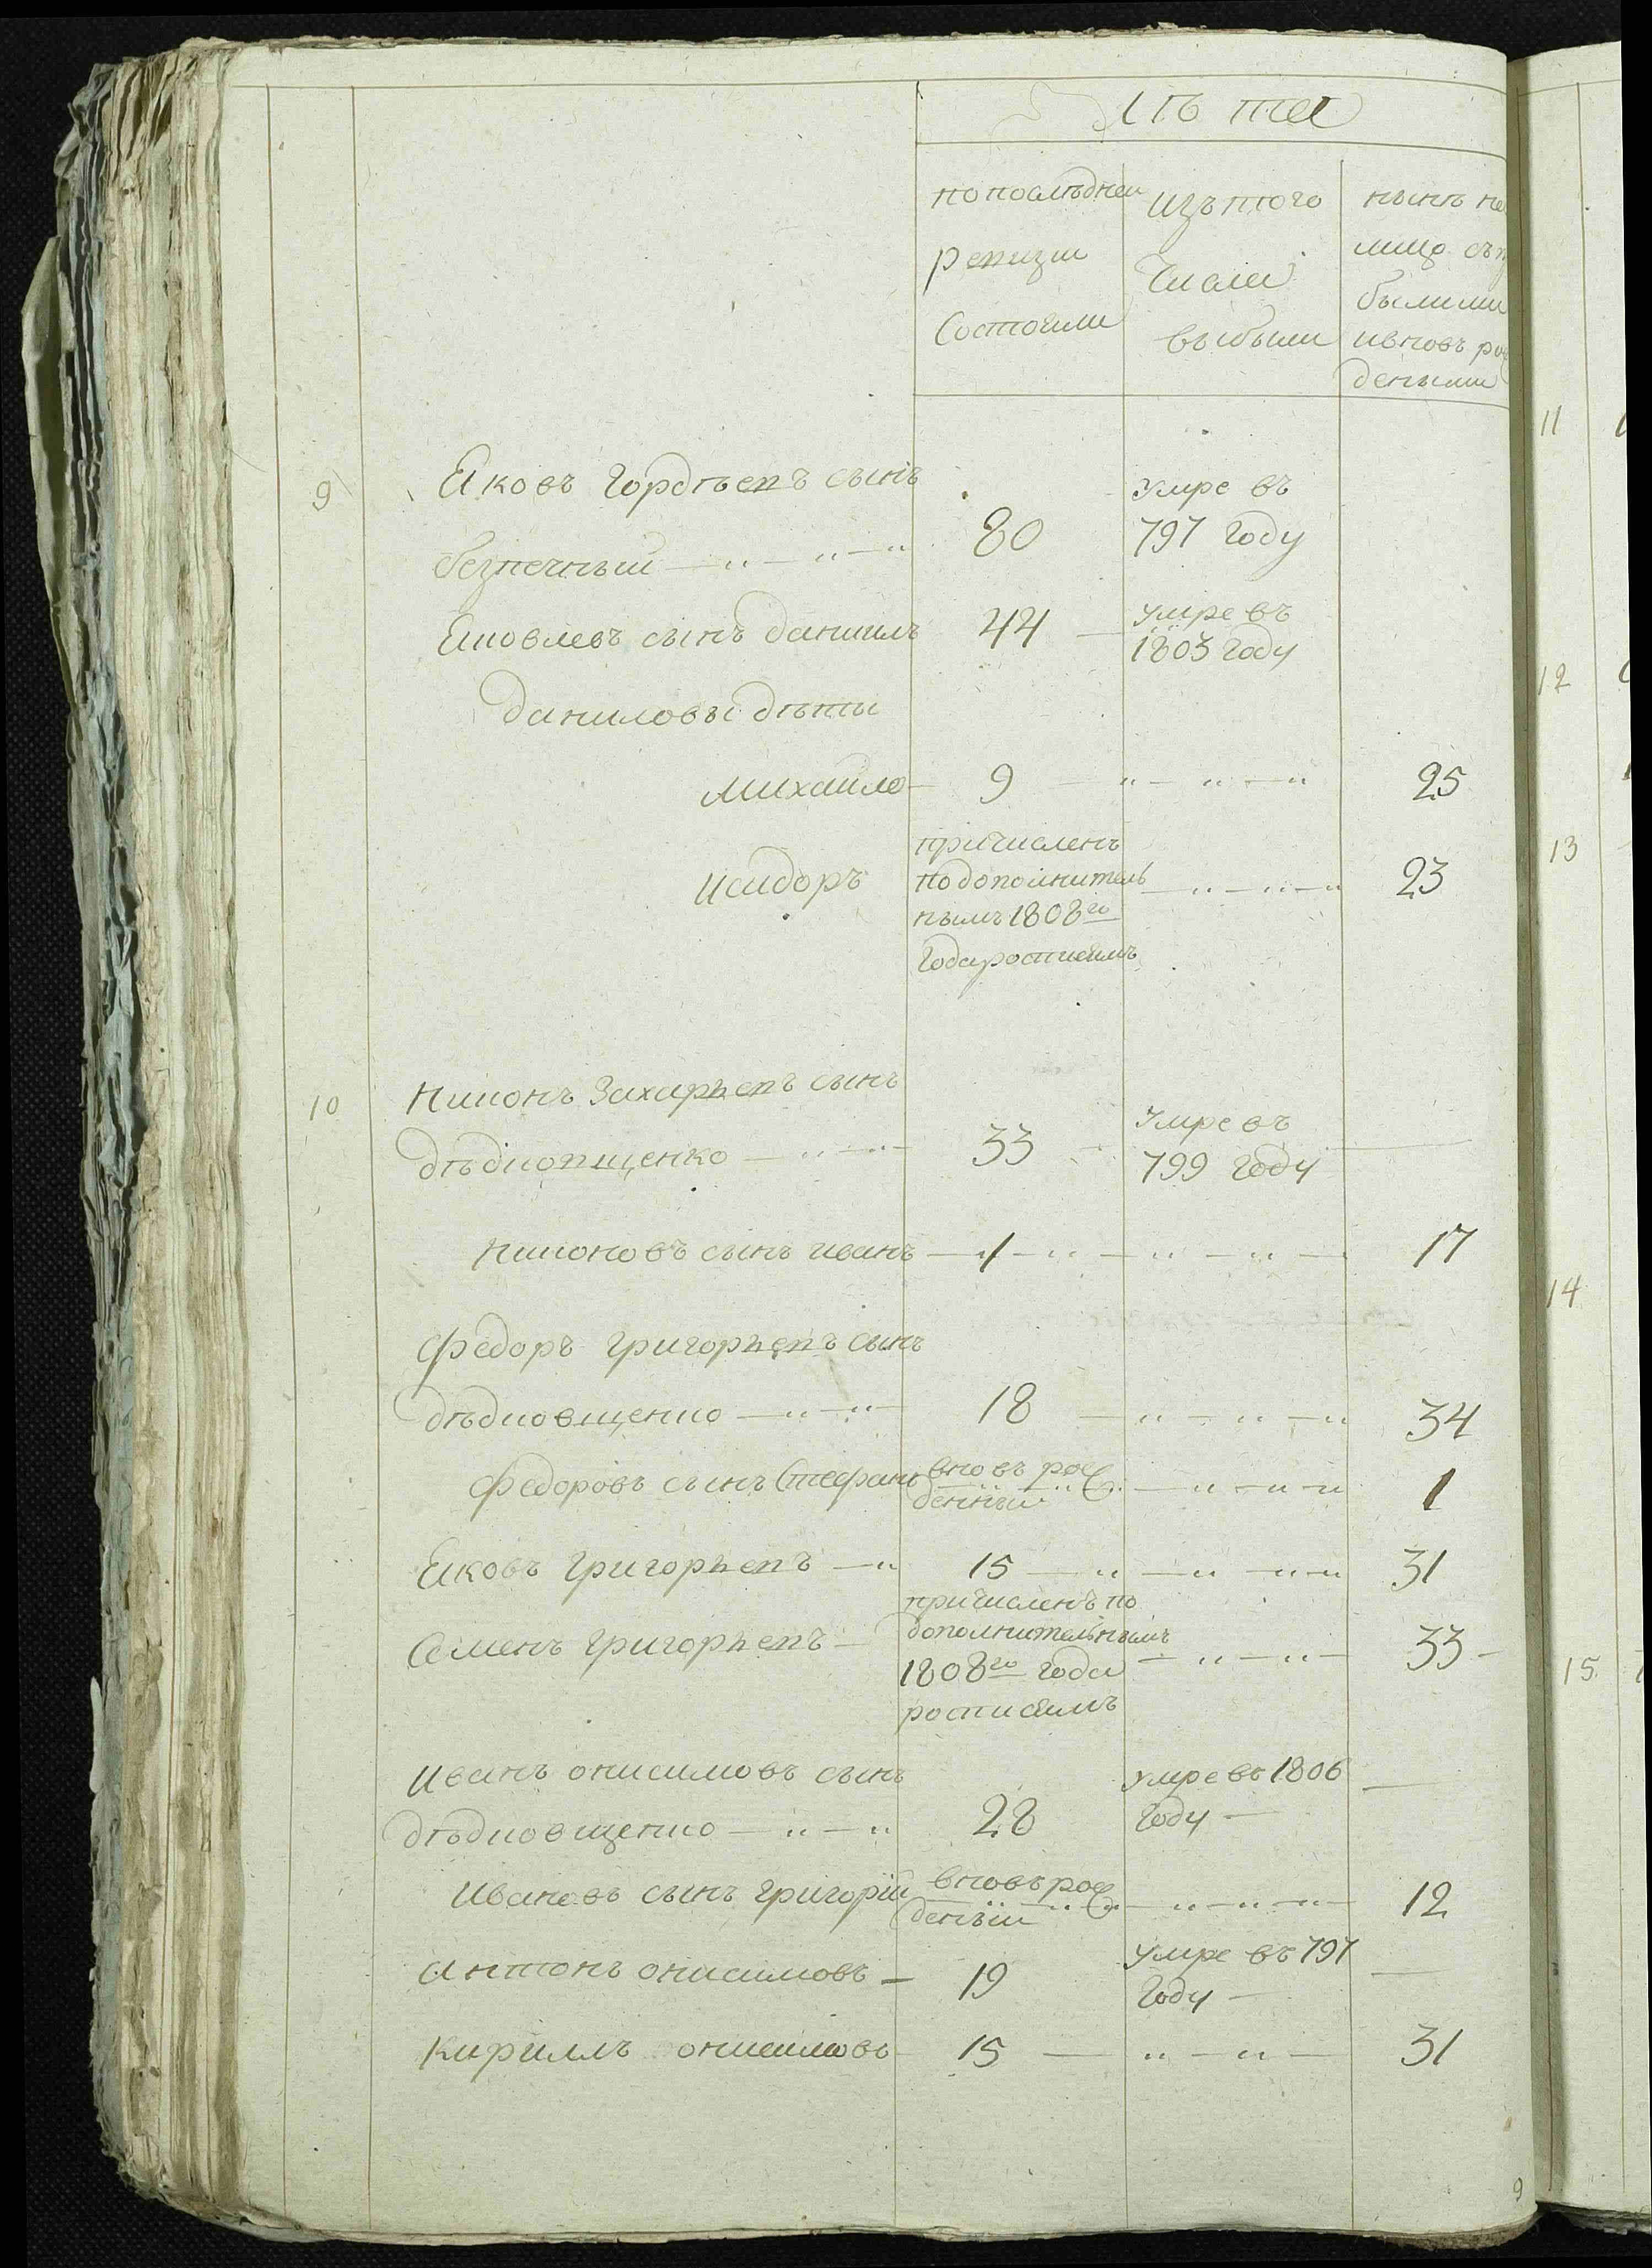 Лѣта
по послѣднеи
ревизіи
Состояли
изъ того
Числа
выбыли
нынѣ на
лицо съ
былыми
и вновь рож
деными
9
Яковъ Гордѣевъ сынъ
безпечный 80
Умре въ
797 году
Яковлевъ сынъ данилъ 44
умре въ
1803 году
даниловы дѣти
михаило 9 25
исидоръ 23
причисленъ
по дополнитель
нымъ 1808го
года росписямъ
10
Никонъ Захарьевъ сынъ
дѣдковщенко 33
Умре въ
799 году
Никоновъ сынъ иванъ 1 17
Федоръ григорьевъ сынъ
дѣдковщенко 18 34
Федоровъ сынъ Стефанъ вновь рож
денный 1
Яковъ григорьевъ 15 31
Семенъ григорьевъ 33
причисленъ по
дополнительнымъ
1808го года
росписямъ
Иванъ онисимовъ сынъ
дѣдковщенко 28
умре въ 1806
году
Ивановъ сынъ григорій вновь рож
деный 12
Антонъ онисимовъ 19
умре въ 797
году
Кириллъ онисимовъ 15 31
9
11
12
13
14
15